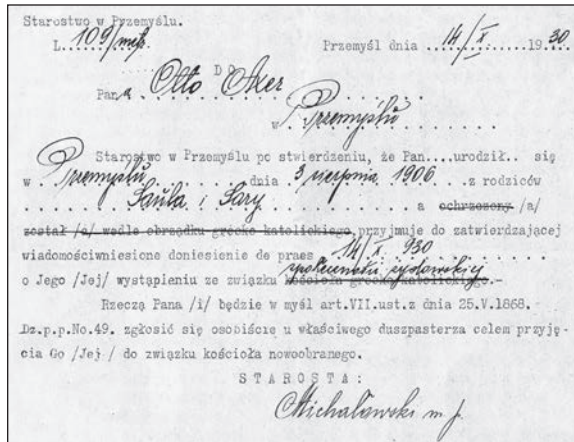 Starostwo w Przemyślu.
L. 109/mtp. Przemyśl dnia 14/X. 1930
DO
Pana Otto Axer
w Przemyślu
Starostwo w Przemyślu po stwierdzeniu, że Pan....urodził.. się
w Przemyślu dnia 3 sierpnia 1906 z rodziców
Saula i Sary a ochrzczony /a/
został /a/ wedle obrządku grecko katolickiego przyjmuje do zatwierdzającej
wiadomościwniesione doniesienie do praes 14/X. 930
o Jego /Jej/ wystąpieniu ze związku kościoła grecko katolickiego.-
żydowskiej
Rzeczą Pana /i/ będzie w myśl art.VII.ust.z dnia 25.V.1868.
Dz.p.p.No.49. zgłosić się osobiście u właściwego duszpasterza celem przyję-
cia Go /Jej/ do związku kościoła nowoobranego.
STAROSTA:
Michałowski m.p.